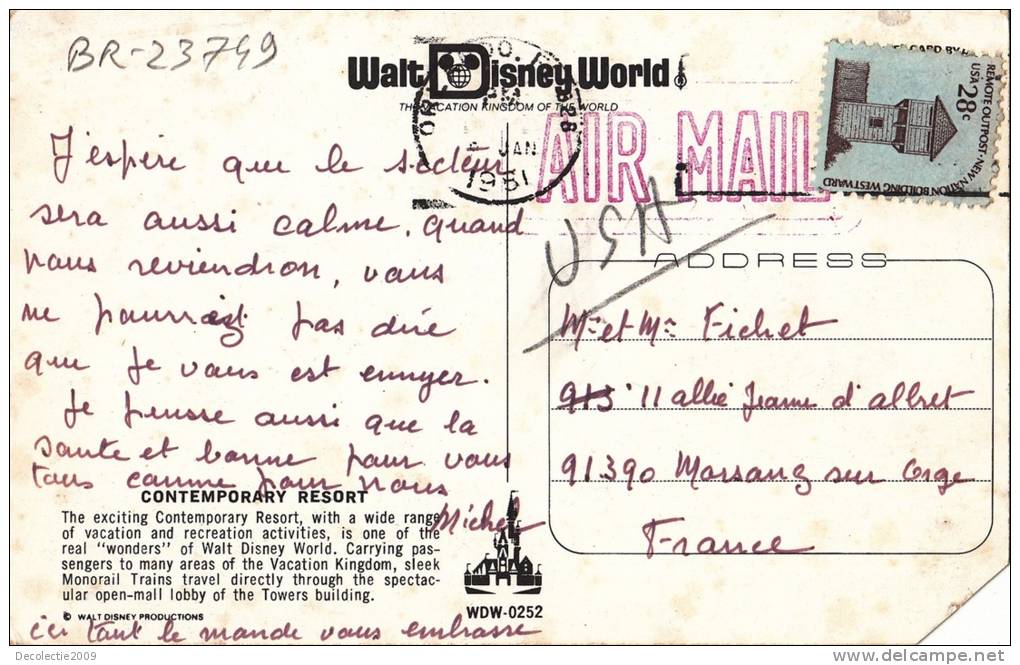 BR-23749
Walt Disney World
THE VACATION KINGDOM OF THE WORLD
JAN
1981
AIR MAIL
REMOTE OUTPOST · NEW NATION BUILDING WESTWARD
USA 28c
USA
J'espère que le secteur
sera aussi calme, quand
nous reviendron, vous
ne pourraiez pas dire
que je vous est ennyer.
Je pensse aussi que la
sante et bonne pour vous
tous comme pour nous
Michel
ADDRESS
Mr et Me Fichet
913 11 allée Jeanne d'albret
91390 Morsang sur Orge
France
CONTEMPORARY RESORT
The exciting Contemporary Resort, with a wide range
of vacation and recreation activities, is one of the
real "wonders" of Walt Disney World. Carrying pas-
sengers to many areas of the Vacation Kingdom, sleek
Monorail Trains travel directly through the spectac-
ular open-mall lobby of the Towers building.
© WALT DISNEY PRODUCTIONS
WDW-0252
ici tout le monde vous embrasse
Decolectie2009
www.delcampe.net